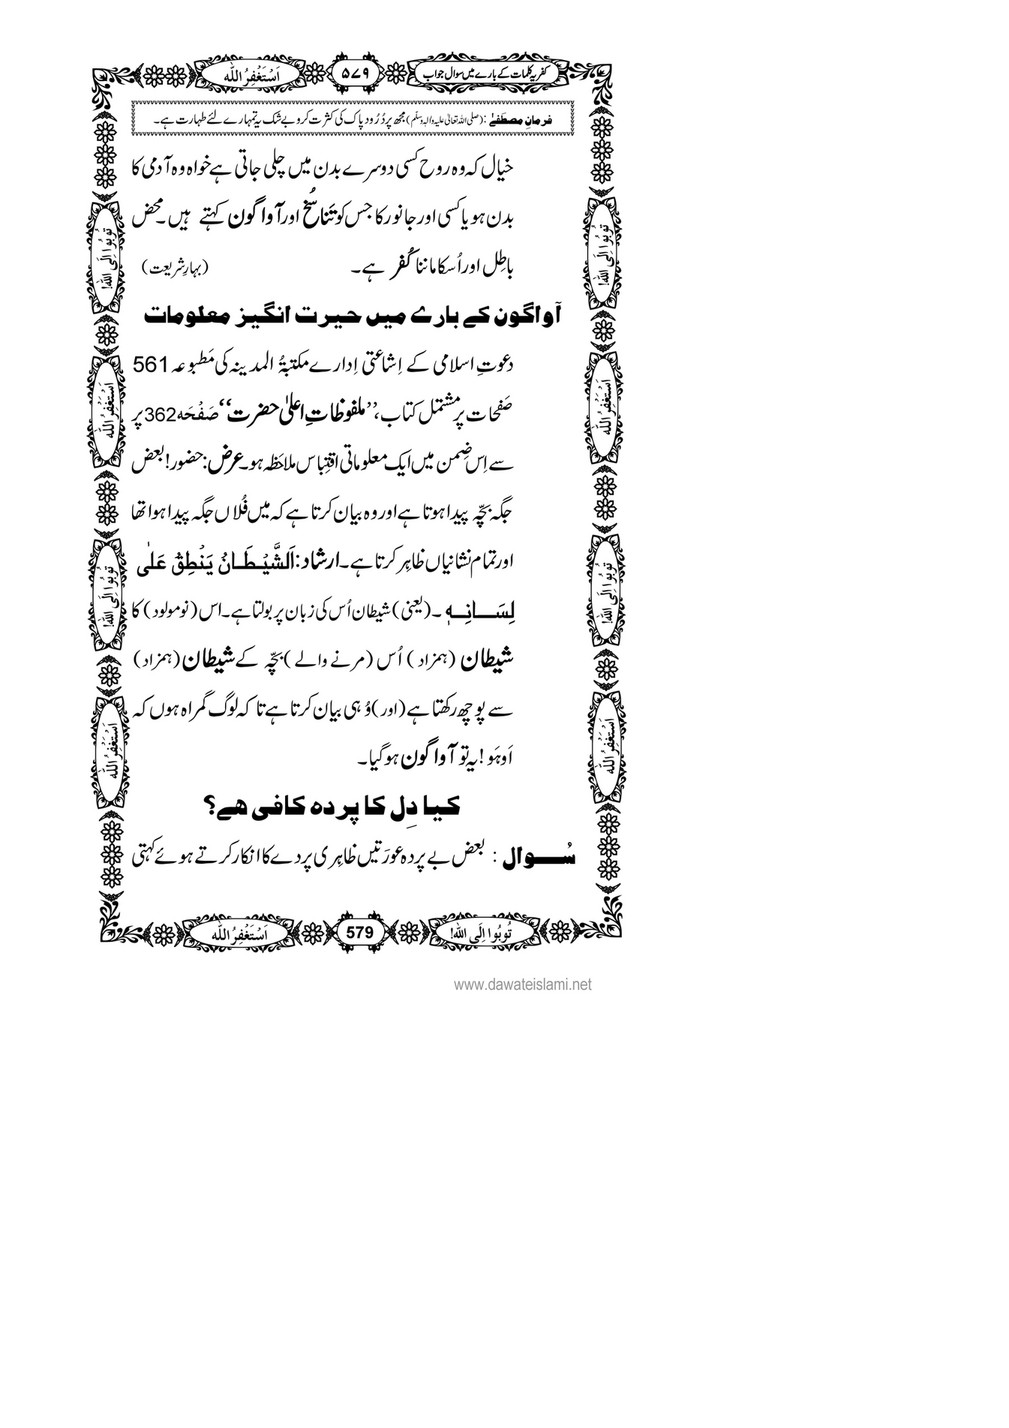 کفریہ کلمات کے بارے میں سوال جواب
۵۷۹
اَسْتَغْفِرُاللّٰه
فرمانِ مصطَفےٰ : (صلی اللہ تعالیٰ علیہ والہٖ وسلّم) مجھ پر دُرُود پاک کی کثرت کرو بے شک یہ تمہارے لئے طہارت ہے۔
خیال کہ وہ روح کسی دوسرے بدن میں چلی جاتی ہے خواہ وہ آدمی کا
بدن ہو یا کسی اور جانور کا جس کو تَناسُخ اور آواگون کہتے ہیں۔محض
باطِل اور اُسکا ماننا کُفر ہے۔ (بہارِشریعت)
آواگون کے بارے میں حیرت انگیز معلومات
دعوتِ اسلامی کے اِشاعَتی اِدارے مکتبۃُ المدینہ کی مَطبوعہ 561
صَفَحات پر مشتمل کتاب، ’’ملفوظاتِ اعلیٰ حضرت‘‘ صَفْحَہ 362 پر
سے اِس ضِمن میں ایک معلوماتی اقتِباس ملاحَظہ ہو۔عرض:حضور! بعض
جگہ بچّہ پیدا ہوتا ہے اور وہ بیان کرتا ہے کہ میں فُلاں جگہ پیدا ہوا تھا
اور تمام نشانیاں ظاہِر کرتا ہے۔ارشاد: اَلشَّیْطَانُ یَنْطِقُ عَلٰی
لِسَانِہٖ ۔(یعنی) شیطان اُس کی زبان پر بولتا ہے۔اس (نومولود) کا
شیطان (ہمزاد ) اُس (مرنے والے ) بچّہ کے شیطان (ہمزاد)
سے پوچھ رکھتا ہے (اور) وُہی بیان کرتا ہے تا کہ لوگ گمراہ ہوں کہ
اَوہَو! یہ تو آواگون ہوگیا۔
کیا دِل کا پردہ کافی ہے؟
سُوال : بعض بے پردہ عورَتیں ظاہِری پردے کا انکار کرتے ہوئے کہتی
تُوبُوا اِلَی اللّٰه!
اَسْتَغْفِرُاللّٰه
تُوبُوا اِلَی اللّٰه!
اَسْتَغْفِرُاللّٰه
تُوبُوا اِلَی اللّٰه!
اَسْتَغْفِرُاللّٰه
تُوبُوا اِلَی اللّٰه!
اَسْتَغْفِرُاللّٰه
تُوبُوا اِلَی اللّٰه!
579
اَسْتَغْفِرُاللّٰه
www.dawateislami.net